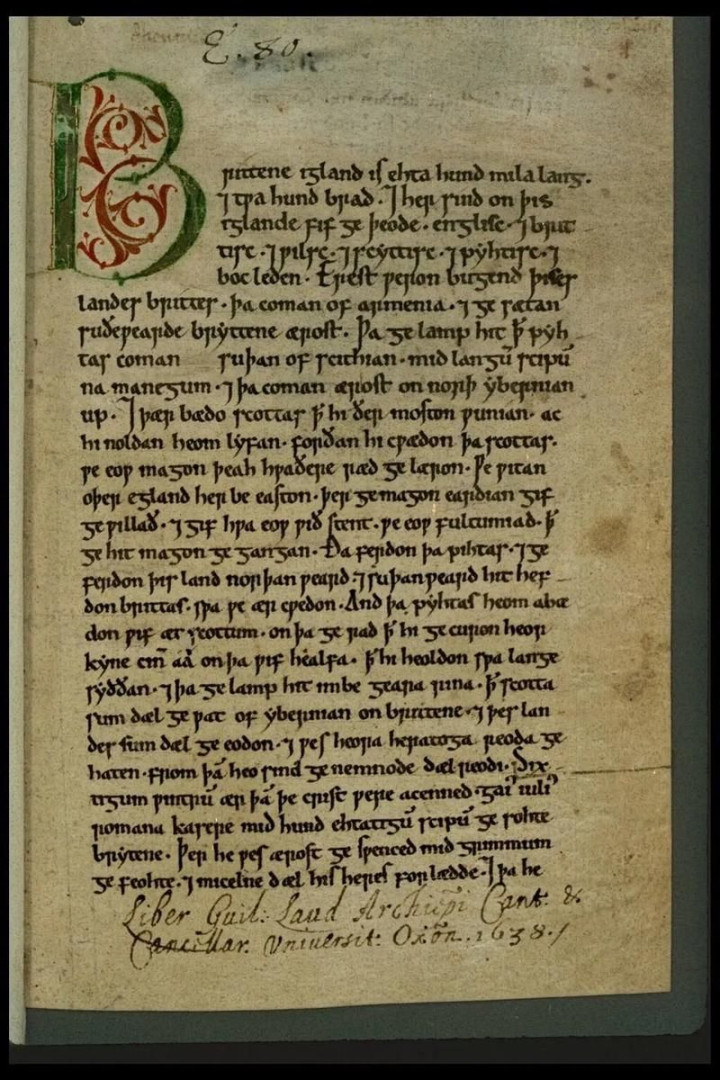 E. 80.
Brittene igland is ehta hund mila lang.
⁊ tƿa hund brad. ⁊ her sind on þis
iglande fif ge þeode. englisc. ⁊ brit
tisc. ⁊ ƿilsc. ⁊ scyttisc. ⁊ pyhtisc. ⁊
boc leden. Erest ƿeron bugend þises
landes brittes. þa coman of armenia. ⁊ ge sætan
suðeƿearde bryttene ærost. Þa ge lamp hit ꝥ pyh
tas coman suþan of scithian. mid langū scipū
na manegum. ⁊ þa coman ærost on norþ ybernian
up. ⁊ þær bædo scottas ꝥ hi ðer moston ƿunian. ac
hi noldan heom lyfan. forðan hi cƿædon þa scottas.
ƿe eoƿ magon þeah hƿaðere ræd ge læron. Ƿe ƿitan
oþer egland her be easton. þer ge magon eardian gif
ge ƿillað. ⁊ gif hƿa eoƿ ƿið stent. ƿe eoƿ fultumiad. ꝥ
ge hit magon ge gangan. Ða ferdon þa pihtas. ⁊ ge
ferdon þis land norþan ƿeard. ⁊ suþan ƿeard hit hef
don brittas. sƿa ƿe ær cƿedon. And þa pyhtas heom abæ
don ƿif æt scottum. on þa ge rad ꝥ hi ge curon heor
kyne cin̄ aá on þa ƿif healfa. ꝥ hi heoldon sƿa lange
syððan. ⁊ þa ge lamp hit imbe geara rina. ꝥ scotta
sum dæl ge ƿat of ybernian on brittene. ⁊ þes lan
des sum dæl ge eodon. ⁊ ƿes heora heratoga reoda ge
haten. from þā heo sind ge nemnode dæl reodi. Six
tigum ƿintrū ær þā þe crist ƿere acenned. gai᾿ iuli᾿
romana kasere mid hund ehtatigū scipū ge sohte
brytene. Þer he ƿes ærost ge sƿenced mid grimmum
ge feohte. ⁊ micelne dæl his heres forlædde. ⁊ þa he
Liber Guil: Laud Archiep̄i Cant. &
Cancillar. Vniuersit: Oxōn. 1638./